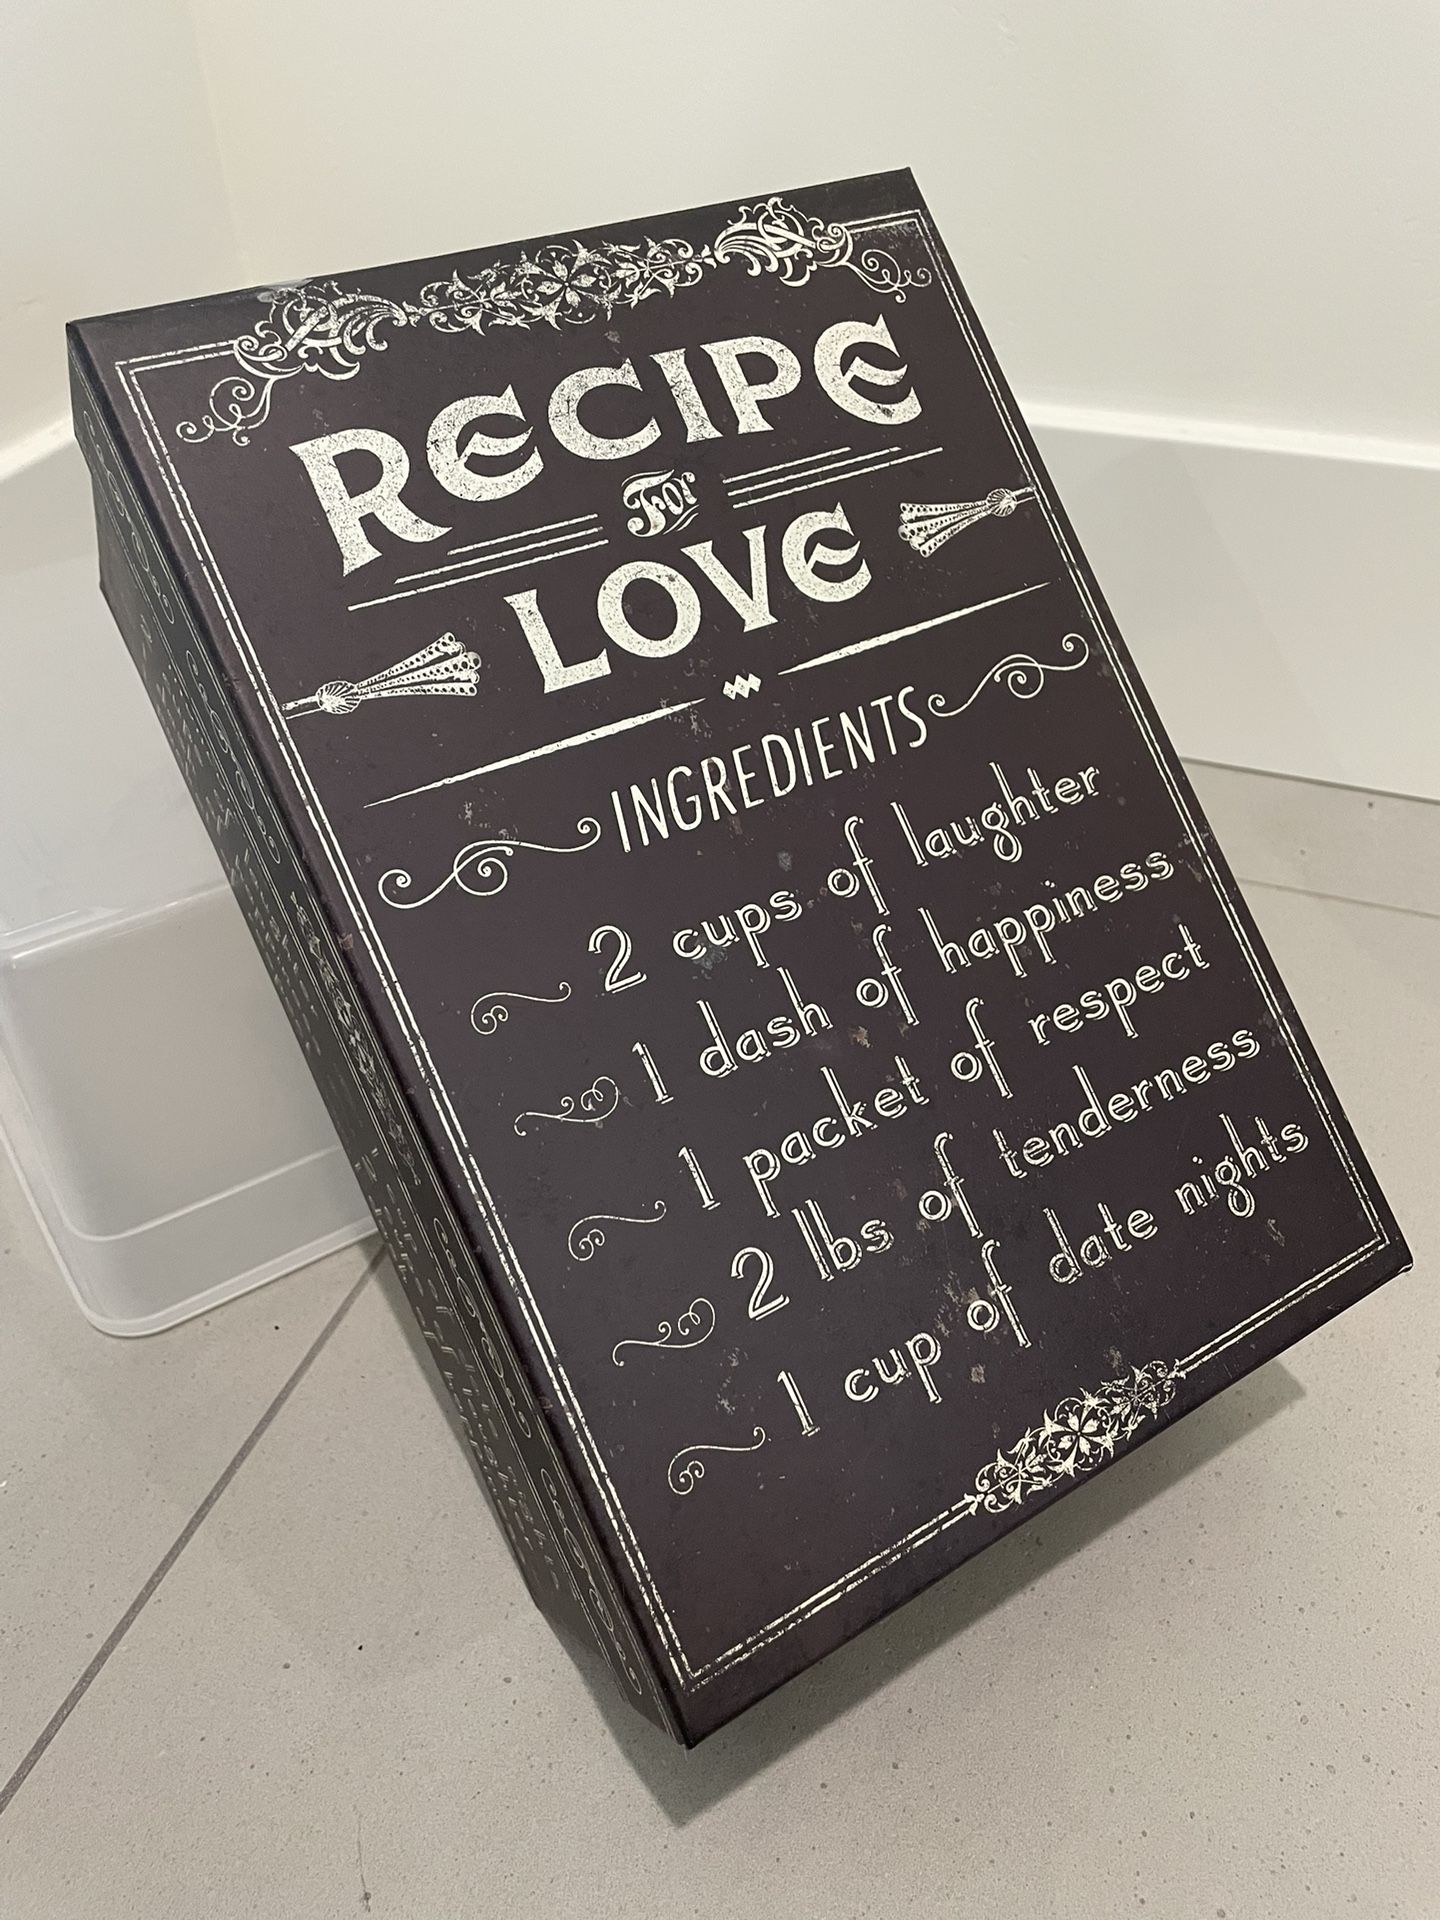 RECIPE
For
LOVE
INGREDIENTS
2 cups of laughter
1 dash of happiness
1 packet of respect
2 lbs of tenderness
1 cup of date nights